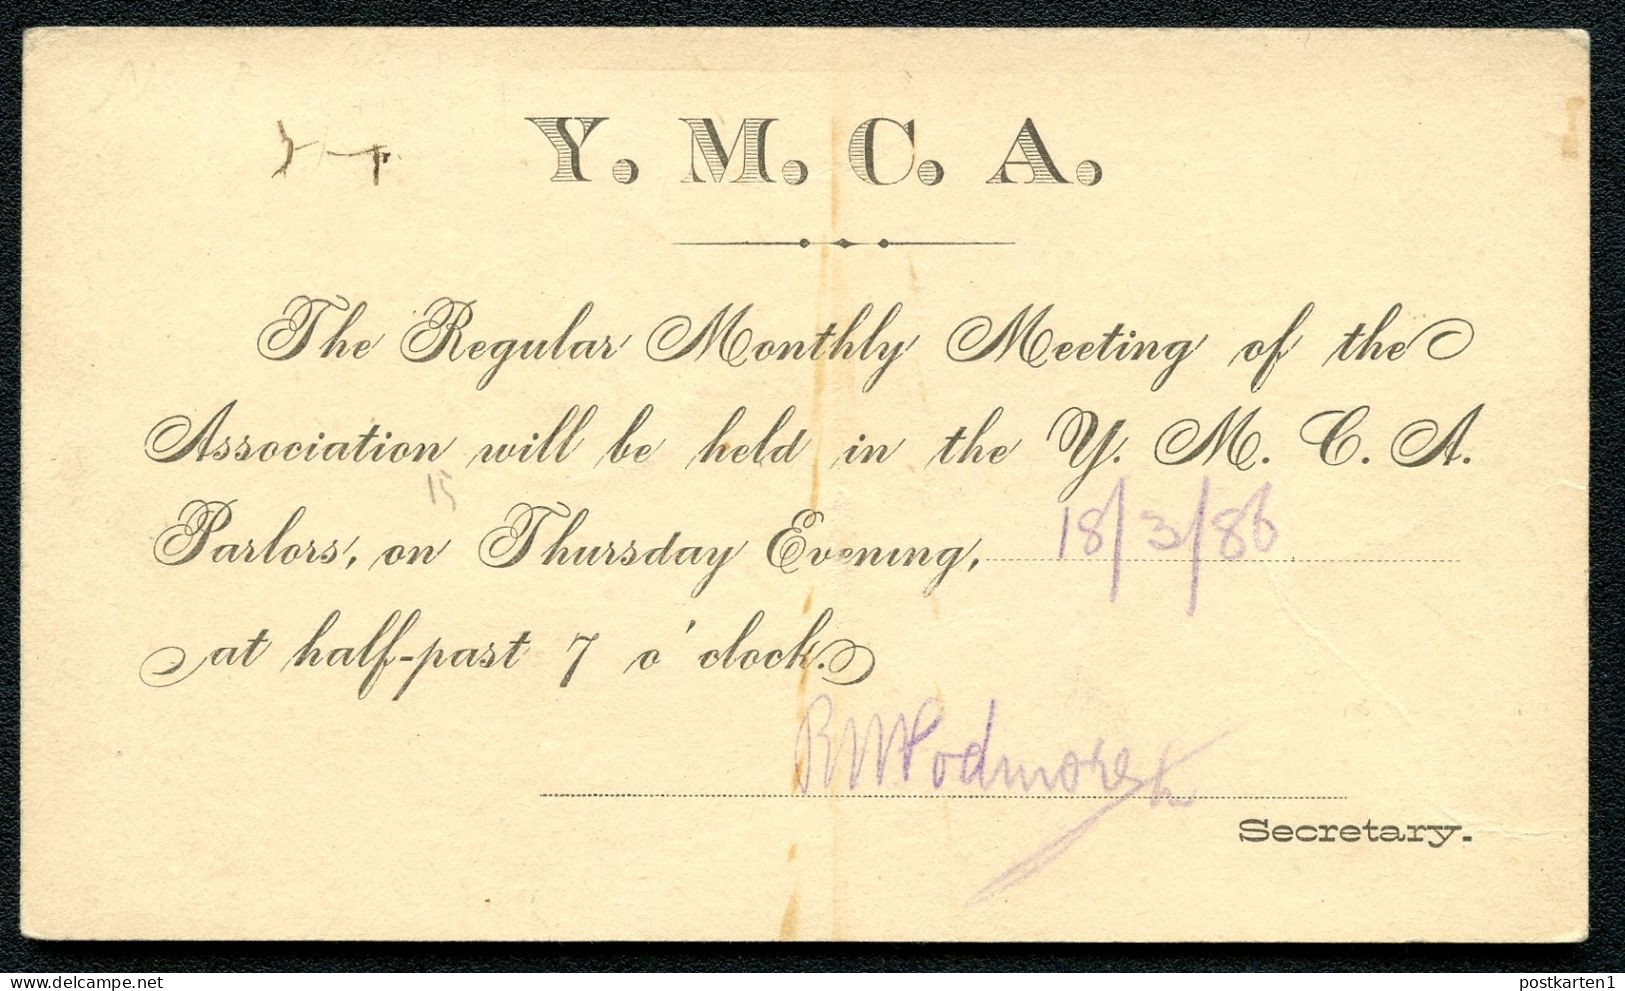 Y. M. C. A.
The Regular Monthly Meeting of the
Association will be held in the Y. M. C. A.
15
Parlors, on Thursday Evening, 18/3/86
at half-past 7 o'clock.
Secretary.
postkarten1